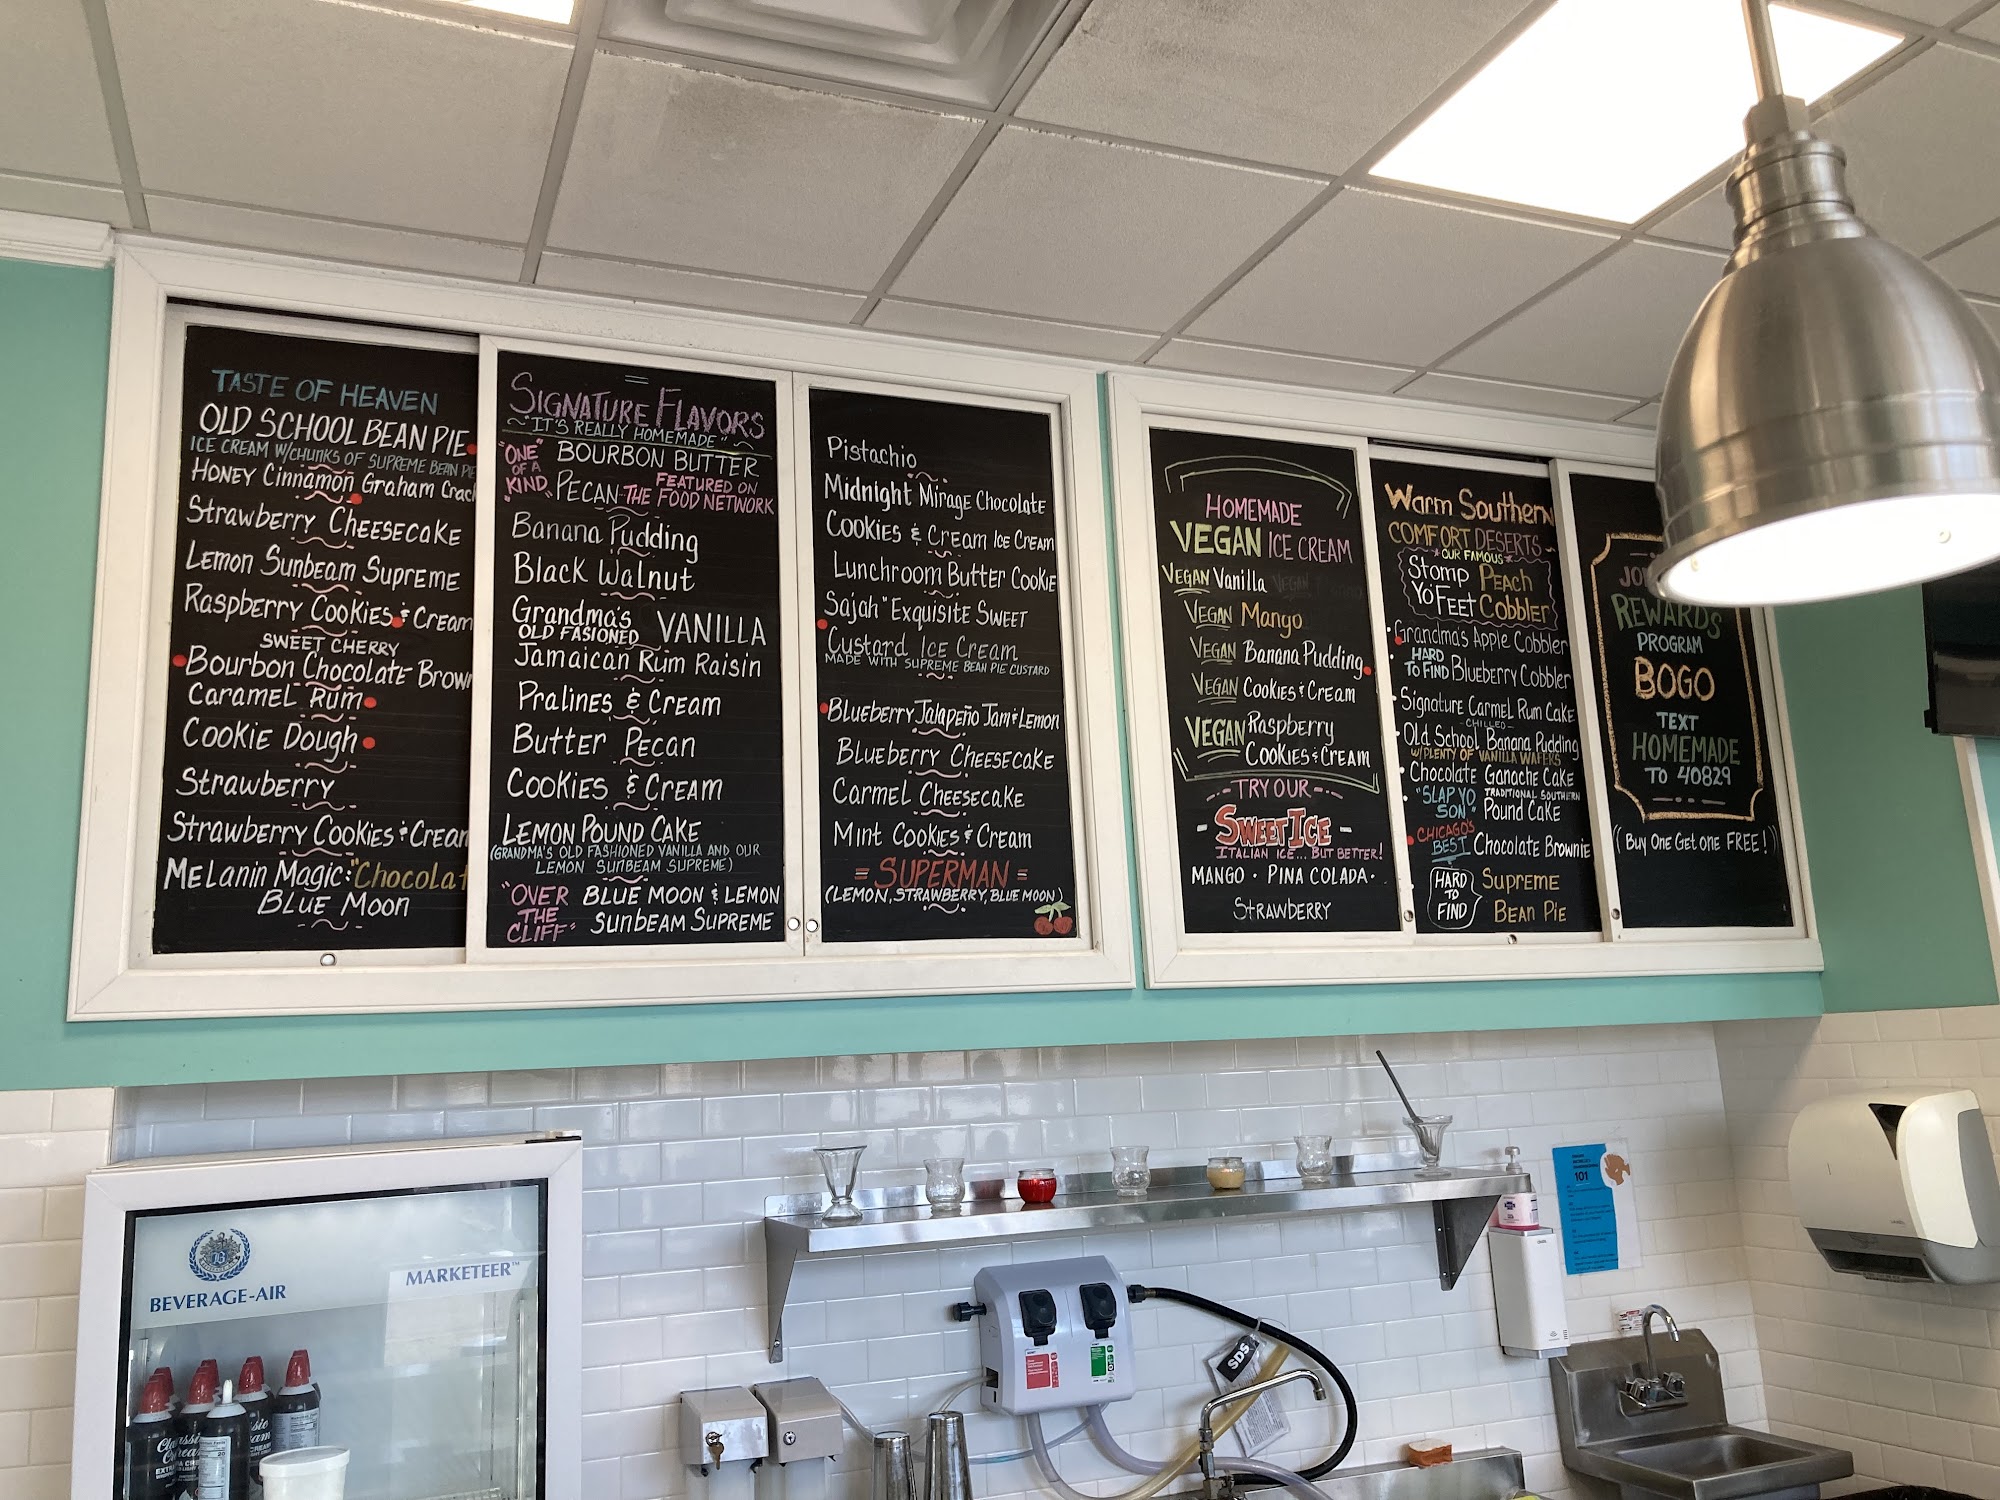 TASTE OF HEAVEN
OLD SCHOOL BEAN PIE
ICE CREAM W/CHUNKS OF SUPREME BEAN PIE
HONEY Cinnamon Graham
Strawberry Cheesecake
Lemon Sunbeam Supreme
Raspberry Cookies & Cream
SWEET CHERRY
Bourbon Chocolate
Caramel Rum
Cookie Dough
Strawberry
Strawberry Cookies & Cream
Melanin Magic: "Chocolat
Blue Moon
SIGNATURE FLAVORS
"IT'S REALLY HOMEMADE"
"ONE" OF A KIND" BOURBON BUTTER
PECAN-THE FOOD NETWORK FEATURED ON
Banana Pudding
Black Walnut
Grandma's VANILLA
OLD FASIONED
Jamaican Rum Raisin
Pralines & Cream
Butter Pecan
Cookies & Cream
LEMON POUND CAKE
(GRANDMA'S OLD FASHIONED VANILLA AND OUR
LEMON SUNBEAM SUPREME)
"OVER THE CLIFF" BLUE MOON & LEMON
SUNBEAM SUPREME
Pistachio
Midnight Mirage Chocolate
Cookies & Cream Ice Cream
Lunchroom Butter Cookie
Sajah" Exquisite Sweet
Custard Ice Cream
MADE WITH SUPREME BEAN PIE CUSTARD
Blueberry Jalapeño Jam & Lemon
Blueberry Cheesecake
Carmel Cheesecake
Mint Cookies & Cream
= SUPERMAN =
(LEMON, STRAWBERRY, BLUE MOON)
HOMEMADE
VEGAN ICE CREAM
VEGAN Vanilla
VEGAN Mango
VEGAN Banana Pudding
VEGAN Cookies & Cream
VEGAN Raspberry
Cookies & Cream
TRY OUR
- SWEET ICE -
ITALIAN ICE... BUT BETTER!
MANGO • PINA COLADA •
STRAWBERRY
Warm Southern
COMFORT DESERTS
OUR FAMOUS
Stomp Peach
Yo Feet Cobbler
Grandma's Apple Cobbler
HARD TO FIND Blueberry Cobbler
Signature Carmel Rum Cake
-CHILLED-
Old School Banana Pudding
W/PLENTY OF VANILLA WAFERS
Chocolate Ganache Cake
"SLAP YO SON" TRADITIONAL SOUTHERN
Pound Cake
CHICAGO'S BEST Chocolate Brownie
HARD TO FIND Supreme
Bean Pie
REWARDS
PROGRAM
BOGO
TEXT
HOMEMADE
TO 40829
((Buy One Get One FREE!))
BEVERAGE-AIR
MARKETEER™
SDS
101